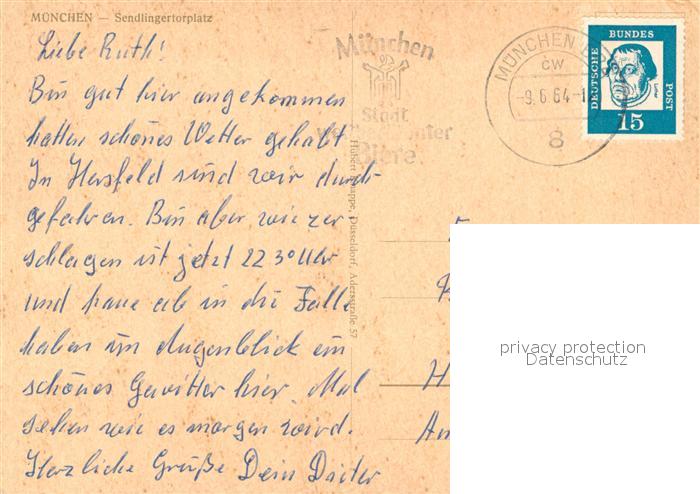 MÜNCHEN — Sendlingertorplatz
Liebe Ruth!
Bin gut hier angekommen
hatten schönes Wetter gehabt
In Hersfeld sind wir durch-
gefahren. Bin aber wie zer-
schlagen ist jetzt 22 30 Uhr
und haue ab in die Falle
haben im Augenblick ein
schönes Gewitter hier. Mal
sehen wie es morgen wird.
Herzliche Grüße Dein Dieter
Düsseldorf, Adersstraße 57
München
Stadt
Biere
MÜNCHEN
cw
-9.6.64-1
8
DEUTSCHE
BUNDES
POST
15
H
An
privacy protection
Datenschutz